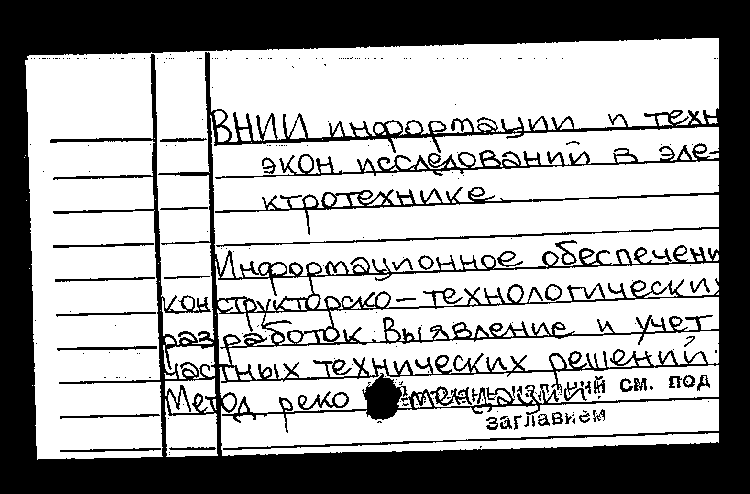 ВНИИ информации и техн
экон. исследований в эле-
ктротехнике.
Информационное обеспечени
конструкторско-технологических
разработок. Выявление и учет
частных технических решений:
Метод. рекомендации см. под
заглавием